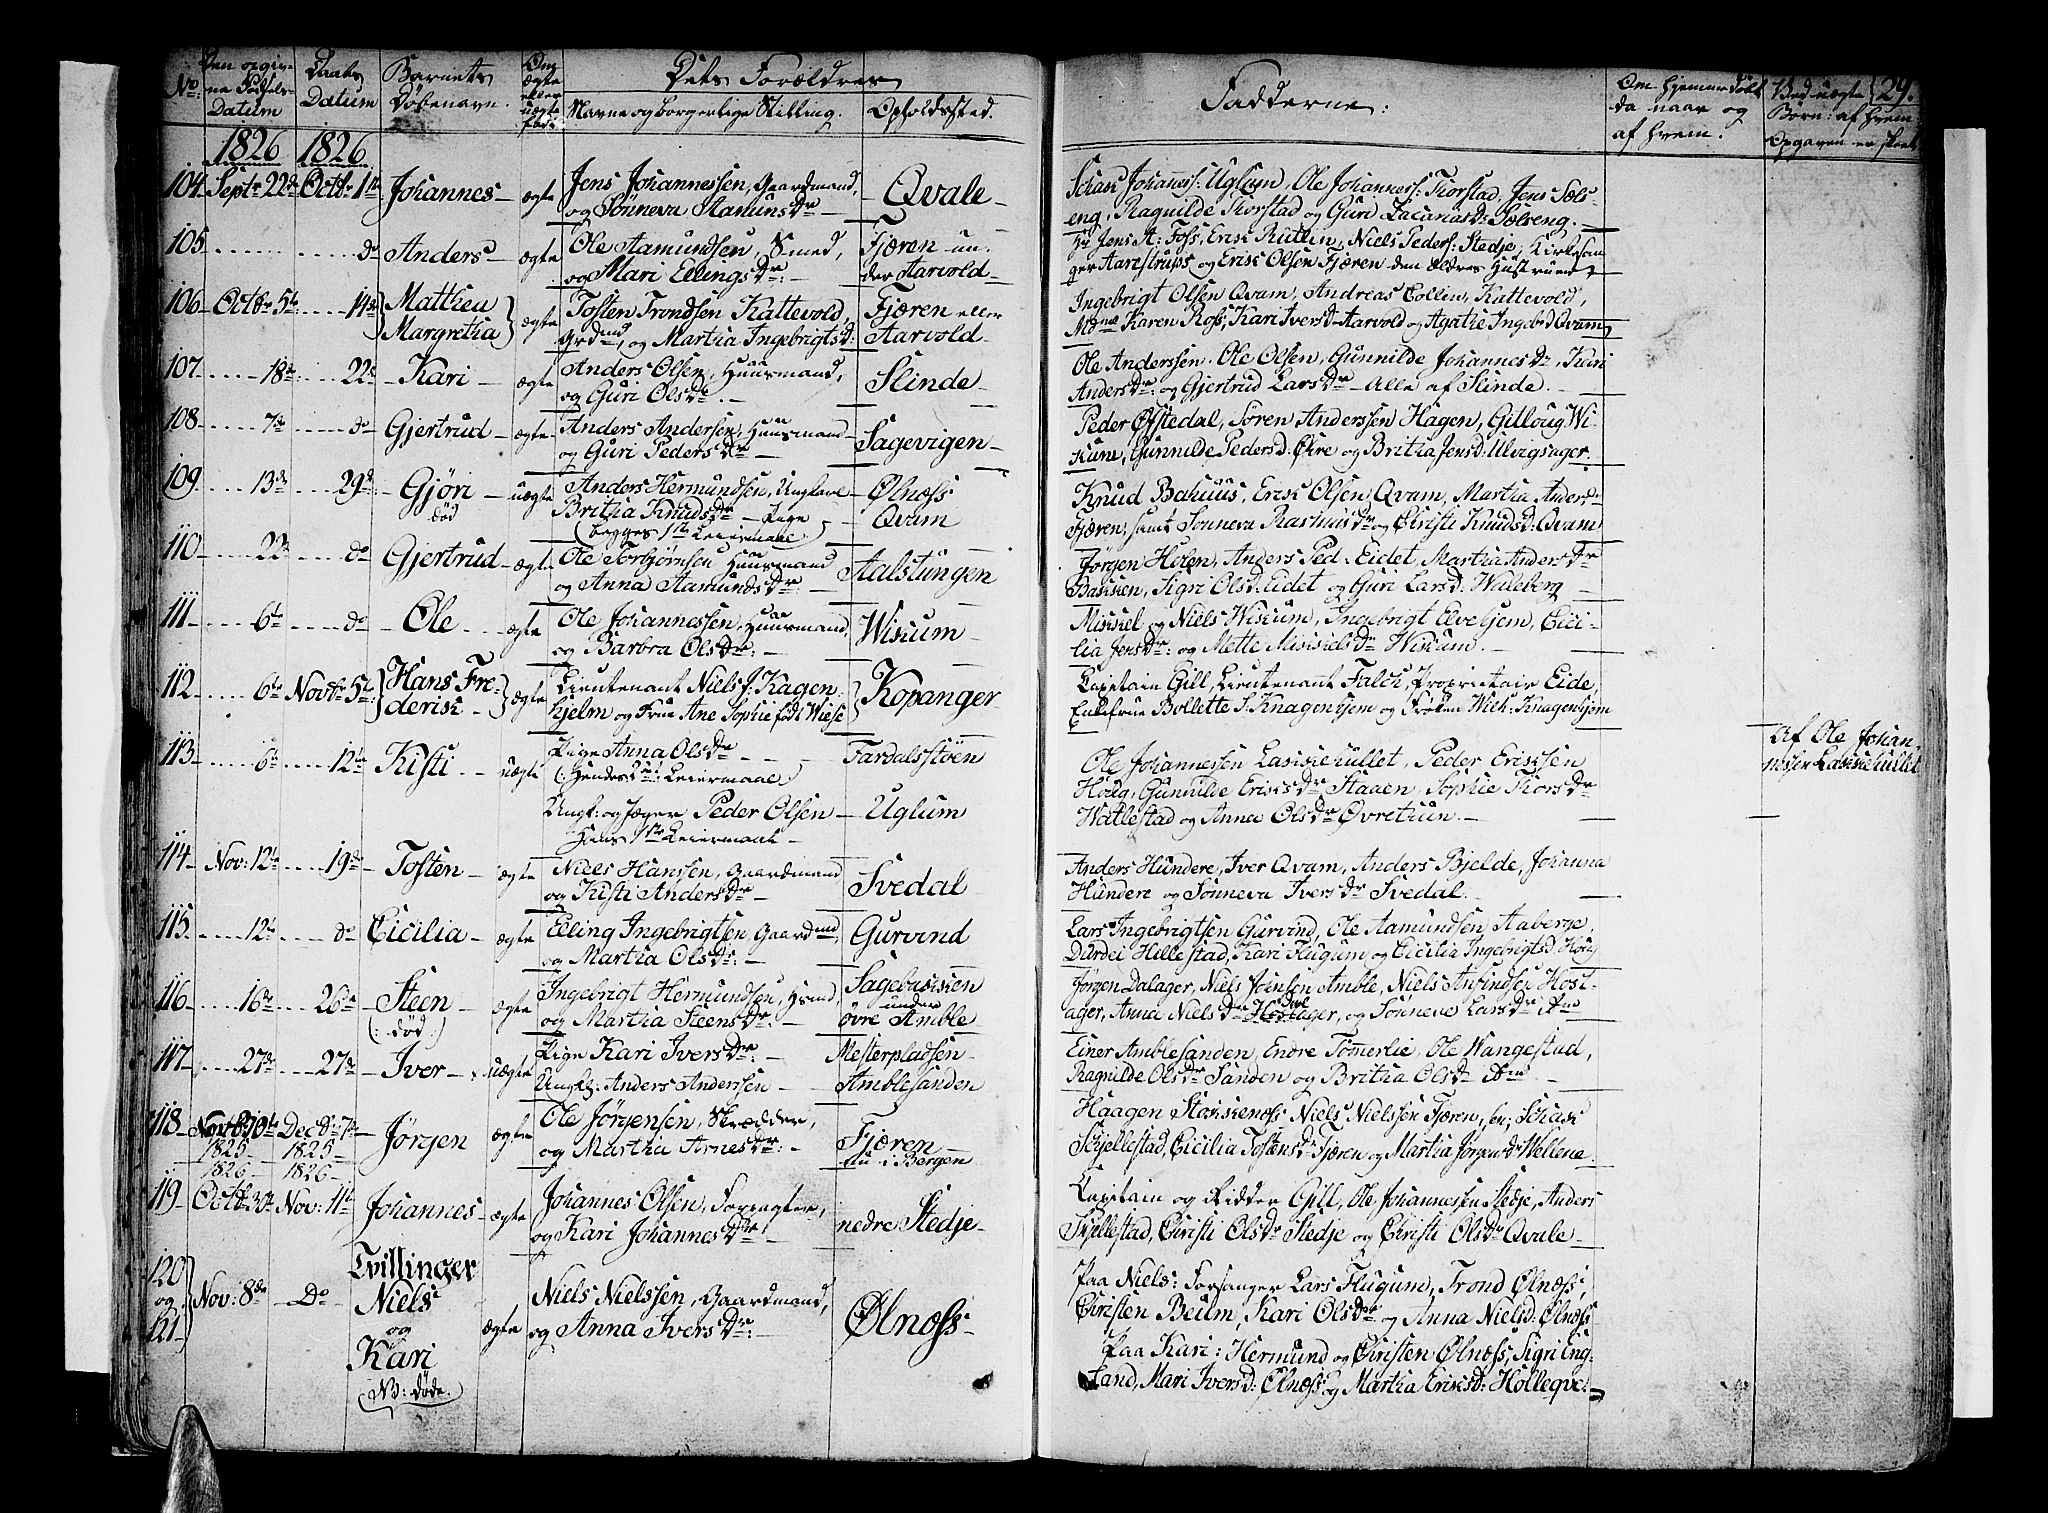 No: Den opgiv-
ne Fødsels-
Datum
Daabs
Datum
Barnets
Døbenavn.
Om
ægte
eller
uægte
født
Dets Forældres
Navne og borgerlige Stilling.
Opholdssted.
Fadderne:
Om hjemmedøbt
da naar og
af hvem.
Ved uægte
Børn: af hvem
Opgaven er skeet
29.
1826 1826
104 Septr 22de Octbr 1ste Johannes ægte Jens Johannessen, Gaardmand,
og Sønneva AamunsDr Qvale
Johanness: Uglum, Ole Johanness: Thorstad, Jens Sæls-
eng, Ragnilde Thorstad og Guri Zacariasd: Sælseng.
105 do Anders ægte Ole Aamundsen, Smed,
og Mari EllingsDr Fjæren un-
der Aarvold
Hr Jens A: Foss, Erik Rutlin, Niels Peders: Stedje, Kirkesan-
ger Aarestrups og Erik Olsen Fjæren den Ældres Hustruer
106 Octbr 5te 14de Matthea
Margretha ægte Tosten Trondsen Kattevold,
Grdmd, og Martha Ingebrigtsd: Fjæren eller
Aarvold
Ingebrigt Olsen Qvam, Andreas Collin, Kattevold,
Karen Ross, Kari Iversd Aarvold og Agathe Ingebd Qvam
107 18de 22de Kari ægte Anders Olsen, Huusmand,
og Guri OlsDr. Slinde
Ole Anderssen, Ole Olsen, Gunnilde JohannesDr, Kari
AndersDr: og Gjertrud LarsDr Alle af Slinde.
108 7de do Gjertrud ægte Anders Andersen, Huusmand
og Guri PedersDr Sagevigen
Peder Øystedal, Søren Anderssen Hagen, Gitloug Wi-
kum, Gunnilde Pedersd. Økre og Britha Jensd: Ulvigsager.
109 13de 29de Gjøri
død uægte Anders Hermundsen, Ungkarl
Britha KnudsDr Pige
(begges 1ste Leiermaal) Ølnæss
Qvam
Knud Bakius, Erik Olsen Qvam, Martha Andersdr
Fjæren, samt Sønneva RasmusDr og Christi Knudsd: Qvam
110 22de do Gjertrud ægte Ole Torbjørnsen Huusmand
og Anna AamundsDr: Aalstungen
Jørgen Holen, Anders Ped: Eidet, Martha AndersDr
Bakken, Sigri Olsd: Eidet og Guri Larsd: Waleberg
111 6te do Ole ægte Ole Johannessen, Huusmand,
og Barbra OlsDr: Wikum
Mikkel og Niels Wikum, Ingebrigt Elvehjem, Cici-
lia JensDr: og Mette MikkelsDr Wikum.
112 6te Novbr 5te Hans Fre-
derik ægte Lieutenant Niels J: Knagen-
hjelm og Frue Ane Sophie født Wiese Kopanger
Capitain Gill, Lieutenant Falck, Proprietair Eide,
Enkefrue Bollette S. Knagenhjem og Frøken Wilh: Knagenhjem
113 6te 12te Kisti uægte Pige Anna OlsDr
(: Hendes Leiermaal:)
Ungk: og Jæger Peder Olsen
Hans 1ste Leiermaal Fardalsstøen
Uglum
Ole Johannessen Lakkehullet, Peder Eriksen
Houg, Gunnilde EriksDr Haagen, Sophie ThorsDr
Watlestad og Anna OlsDr Øvretun.
Af Ole Johan-
nessen Lakkehullet
114 Nov: 12te 19de Tosten ægte Niels Hanssen, Gaardmand
og Kisti AndersDr Svedal
Anders Hundere, Iver Qvam, Anders Bjelde, Johanna
Hundere og Sønneva IversDr Svedal.
115 12te do Cicilia ægte Elling Ingebrigtsen, Gaardmd,
og Martha OlsDr: Gurvind
Lars Ingebrigtsen Gurvind, Ole Aamundsen Aaberge,
Durdei Hillestad, Kari Flugum og Cicilia Ingebrigtsd Houg
116 16de 26de Steen
(: død :) ægte Ingebrigt Hermundsen, Hmnd,
og Martha SteensDr: Sagebakken
under
øvre Amble
Jørgen Dalager, Niels Joensen Amble, Niels Anfindsen Hosl-
ager, Anna NielsDr Hoslager, og Sønneve LarsDr
117 27de 27de Iver uægte Pige Kari IversDr:
Ungk: Anders Anderssen Mesterpladsen
Amblesanden
Einer Amblesanden, Endre Tømerlie, Ole Wangestad,
Ragnilde OlsDr Sanden og Britha OlsDr
118 Novbr 30te Decbr 7de
1825 1825 Jørgen ægte Ole Jørgensen, Skrædder,
og Martha ArnesDr: Fjæren
nu i Bergen
Haagen Stokkenæss Niels Nielssen Fjæren, sen:
Skjellestad, Cicilia Tostensdr Fjæren og Martha Jørgensdr Wellene.
1826 1826
119 Octbr 30te Nov: 11te Johannes ægte Johannes Olsen, Forpagter,
og Kari JohannesDr: nedre Stedje
Capitain og Ridder Gill, Ole Johannessen Stedje, Anders
Skjellestad, Christi OlsDr Stedje og Christi OlsDr Qvale
120
og
121 Nov: 8de Do Tvillinger
Niels
og
Kari
(NB: døde.) ægte Niels Nielssen, Gaardmand,
og Anna IversDr: Ølnæss
Paa Niels: Forsanger Lars Flugum, Trond Ølnæss,
Christen Beim, Kari OlsDr og Anna Nielsd: Ølnæss
Paa Kari: Hermund og Christen Ølnæss, Sigri Eng-
land, Mari Iversd: Ølnæss og Martha Eriksd: Holleqve-